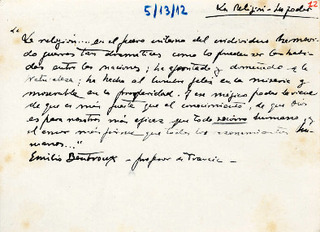 5/13/12
La Religión - La poder
12
"La religión.... en el pasado externo del individuo ha movido guerras tan dramáticas como lo pueden ser las habidas entre las naciones; ha afrontado y dominado a la
naturaleza; ha hecho al hombre feliz en la miseria y
miserable en la prosperidad. Y ese mágico poder le viene
de que es más fuerte que el conocimiento, de que Dios
es para nosotros más eficaz que todo socorro humano, y
el amor más firme que todos los razonamientos hu-
manos..."
Emilio Boutroux - profesor de Francia -